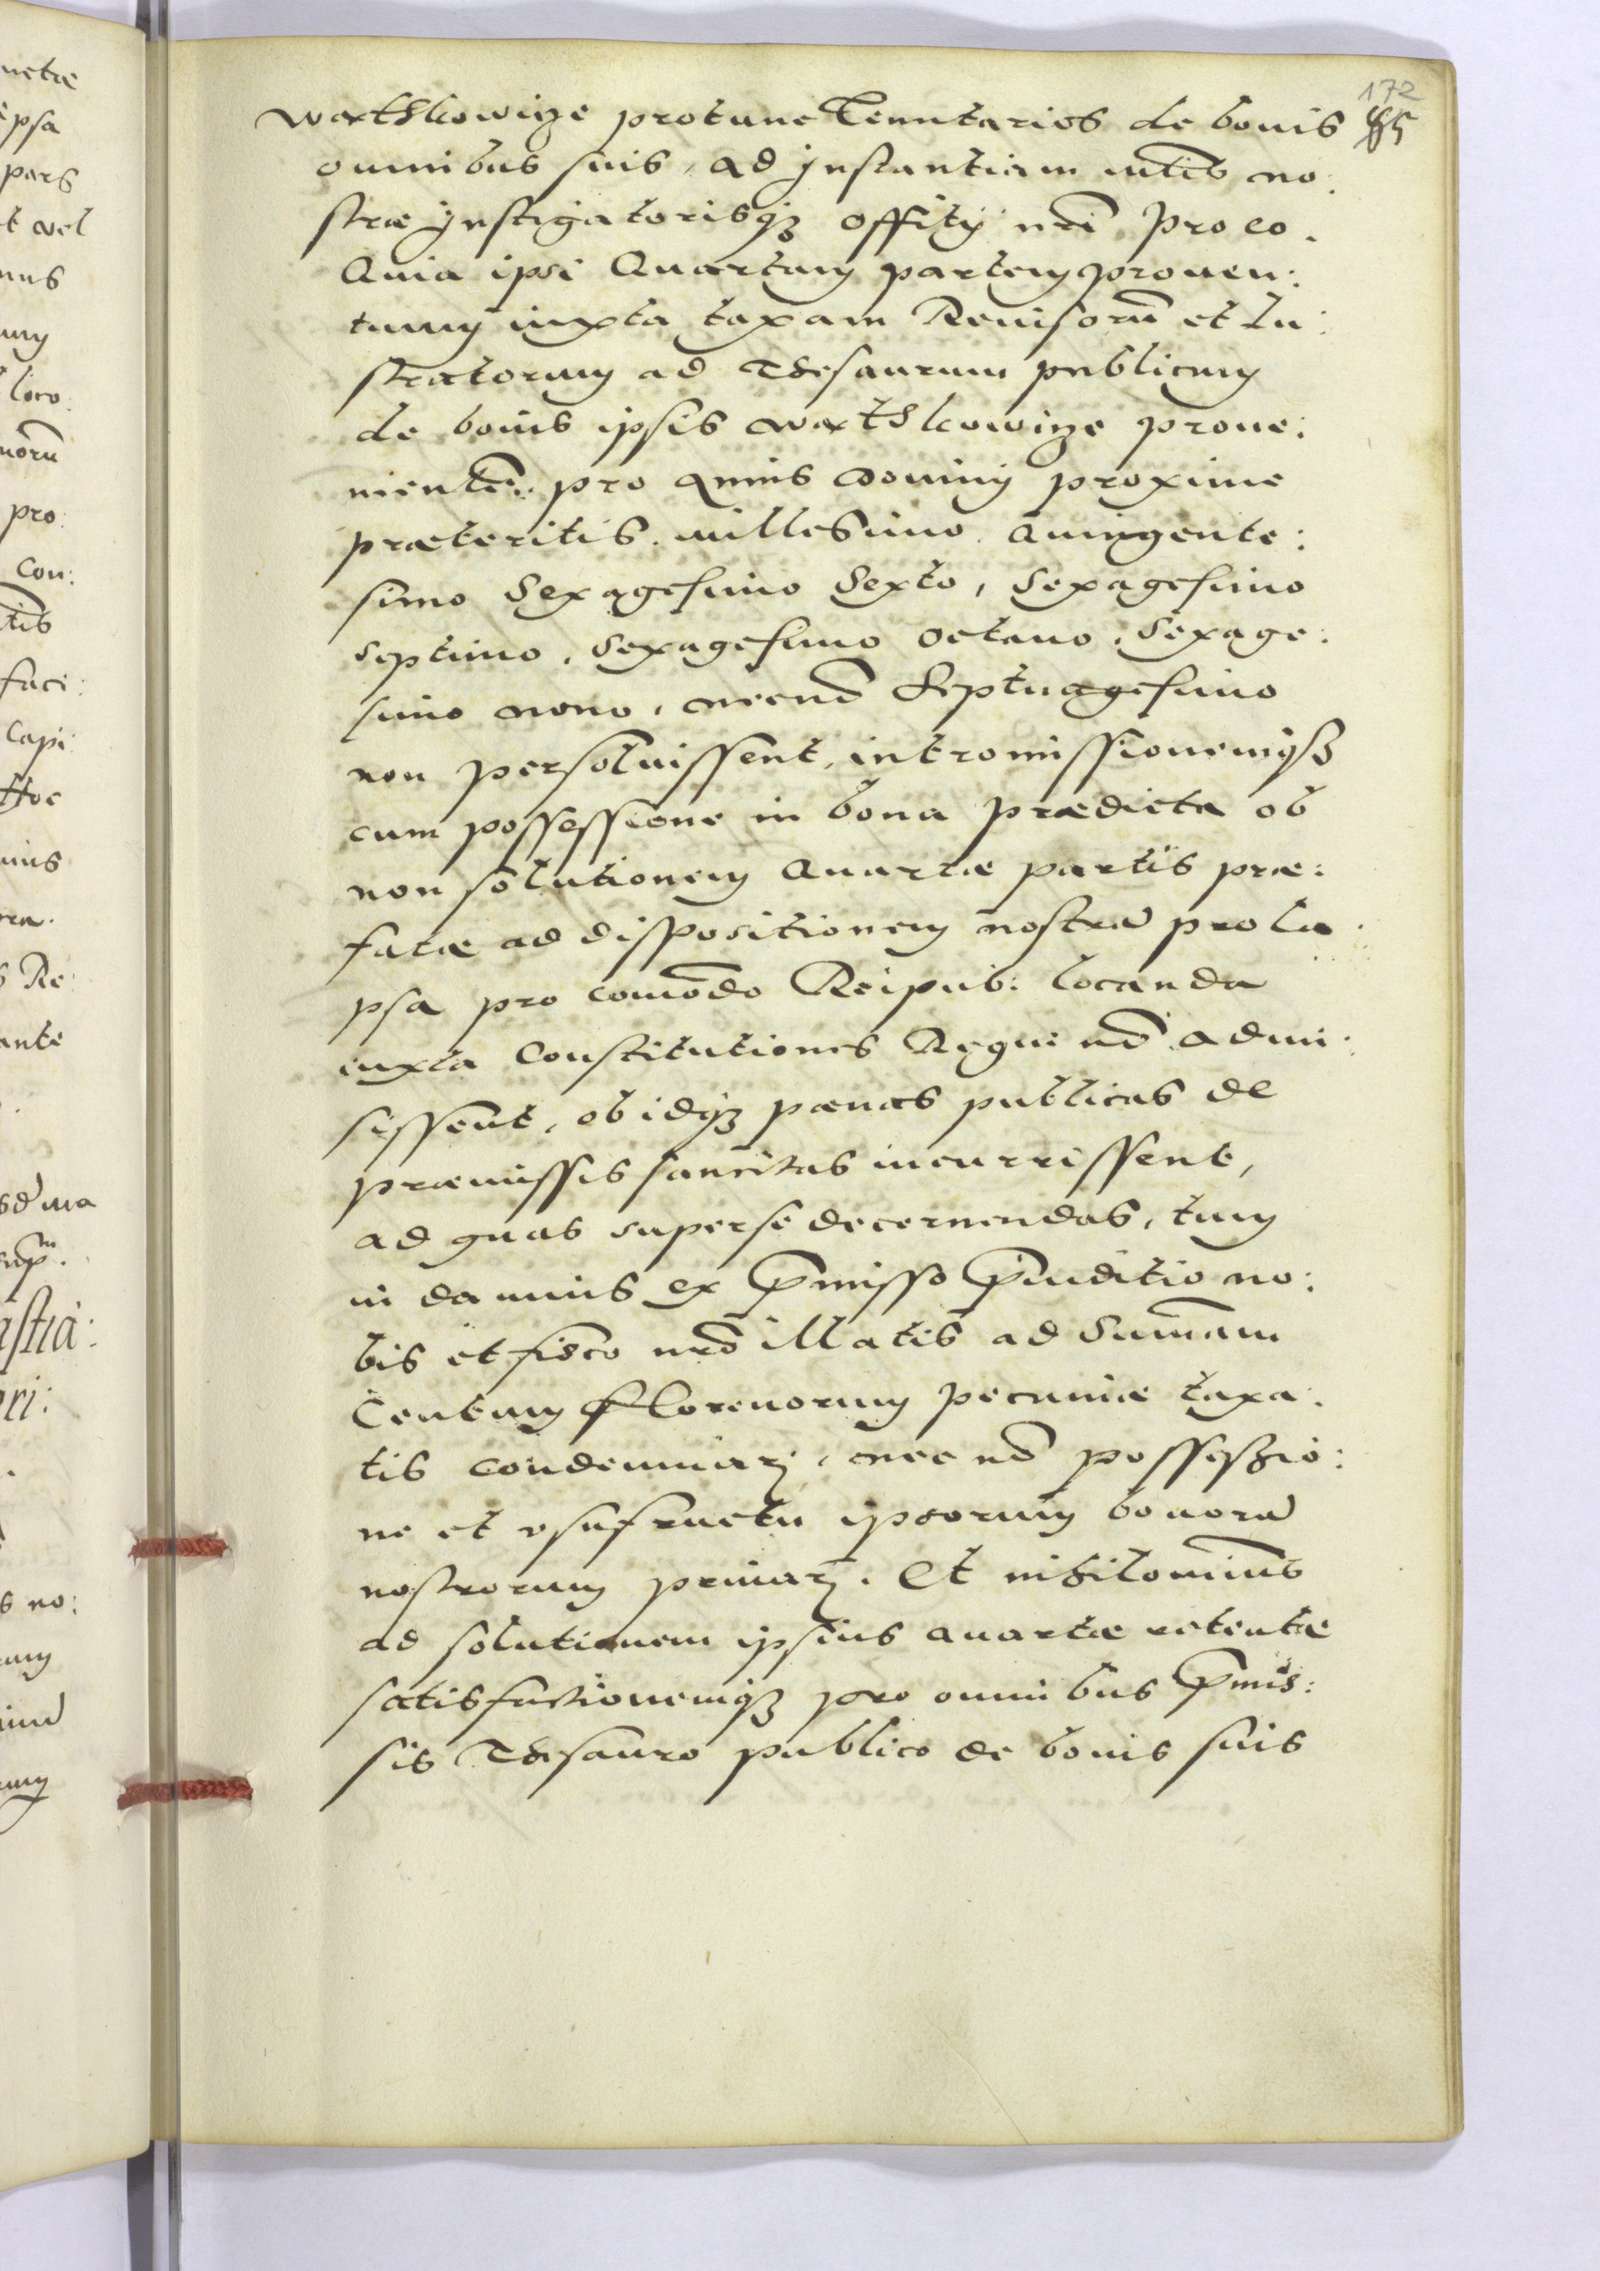 172
warthkowicze protunc Tenutarios de bonis
omnibus suis, ad Instantiam no:
stræ Instigatorisqz Offitij nri pro eo.
Quia ipsi Quartam partem prouen:
tuum iuxta taxam Reuisorū et lu:
stratorum ad Thesaurum publicum
de bonis ipsis warthkowicze proue:
nientē. pro Annis Domini proxime
præteritis. millesimo. Quingente:
simo Sexagesimo Sexto, Sexagesimo
septimo, Sexagesimo Octauo, Sexage:
simo nono, necnō Septuagesimo
non persoluissent, intromissionemqz
cum possessione in bona prædicta ob
non solutionem Quartæ partis præ:
fatæ ad dispositionem nostrā prola
psa pro comōdo Reipub: locanda
iuxta Constitutiones Regni nō admi:
sissent, ob idqz pænas publicas de
præmissis sancitas incurrissent,
ad quas superse decernendas, tum
in damnis ex p̄misso p̄iuditio no:
bis et fisco nrō illatis ad Sum̄am
Centum Florenorum pecuniæ taxa:
tis condemnarj, nec nō possessio:
ne et vsufructu ipsorum bonorū
nostrorum priuarj. Et nihilominus
ad solutionem ipsius Quartæ retentæ
satisfactionemqz pro omnibus p̄mis:
sis Thesauro publico de bonis suis